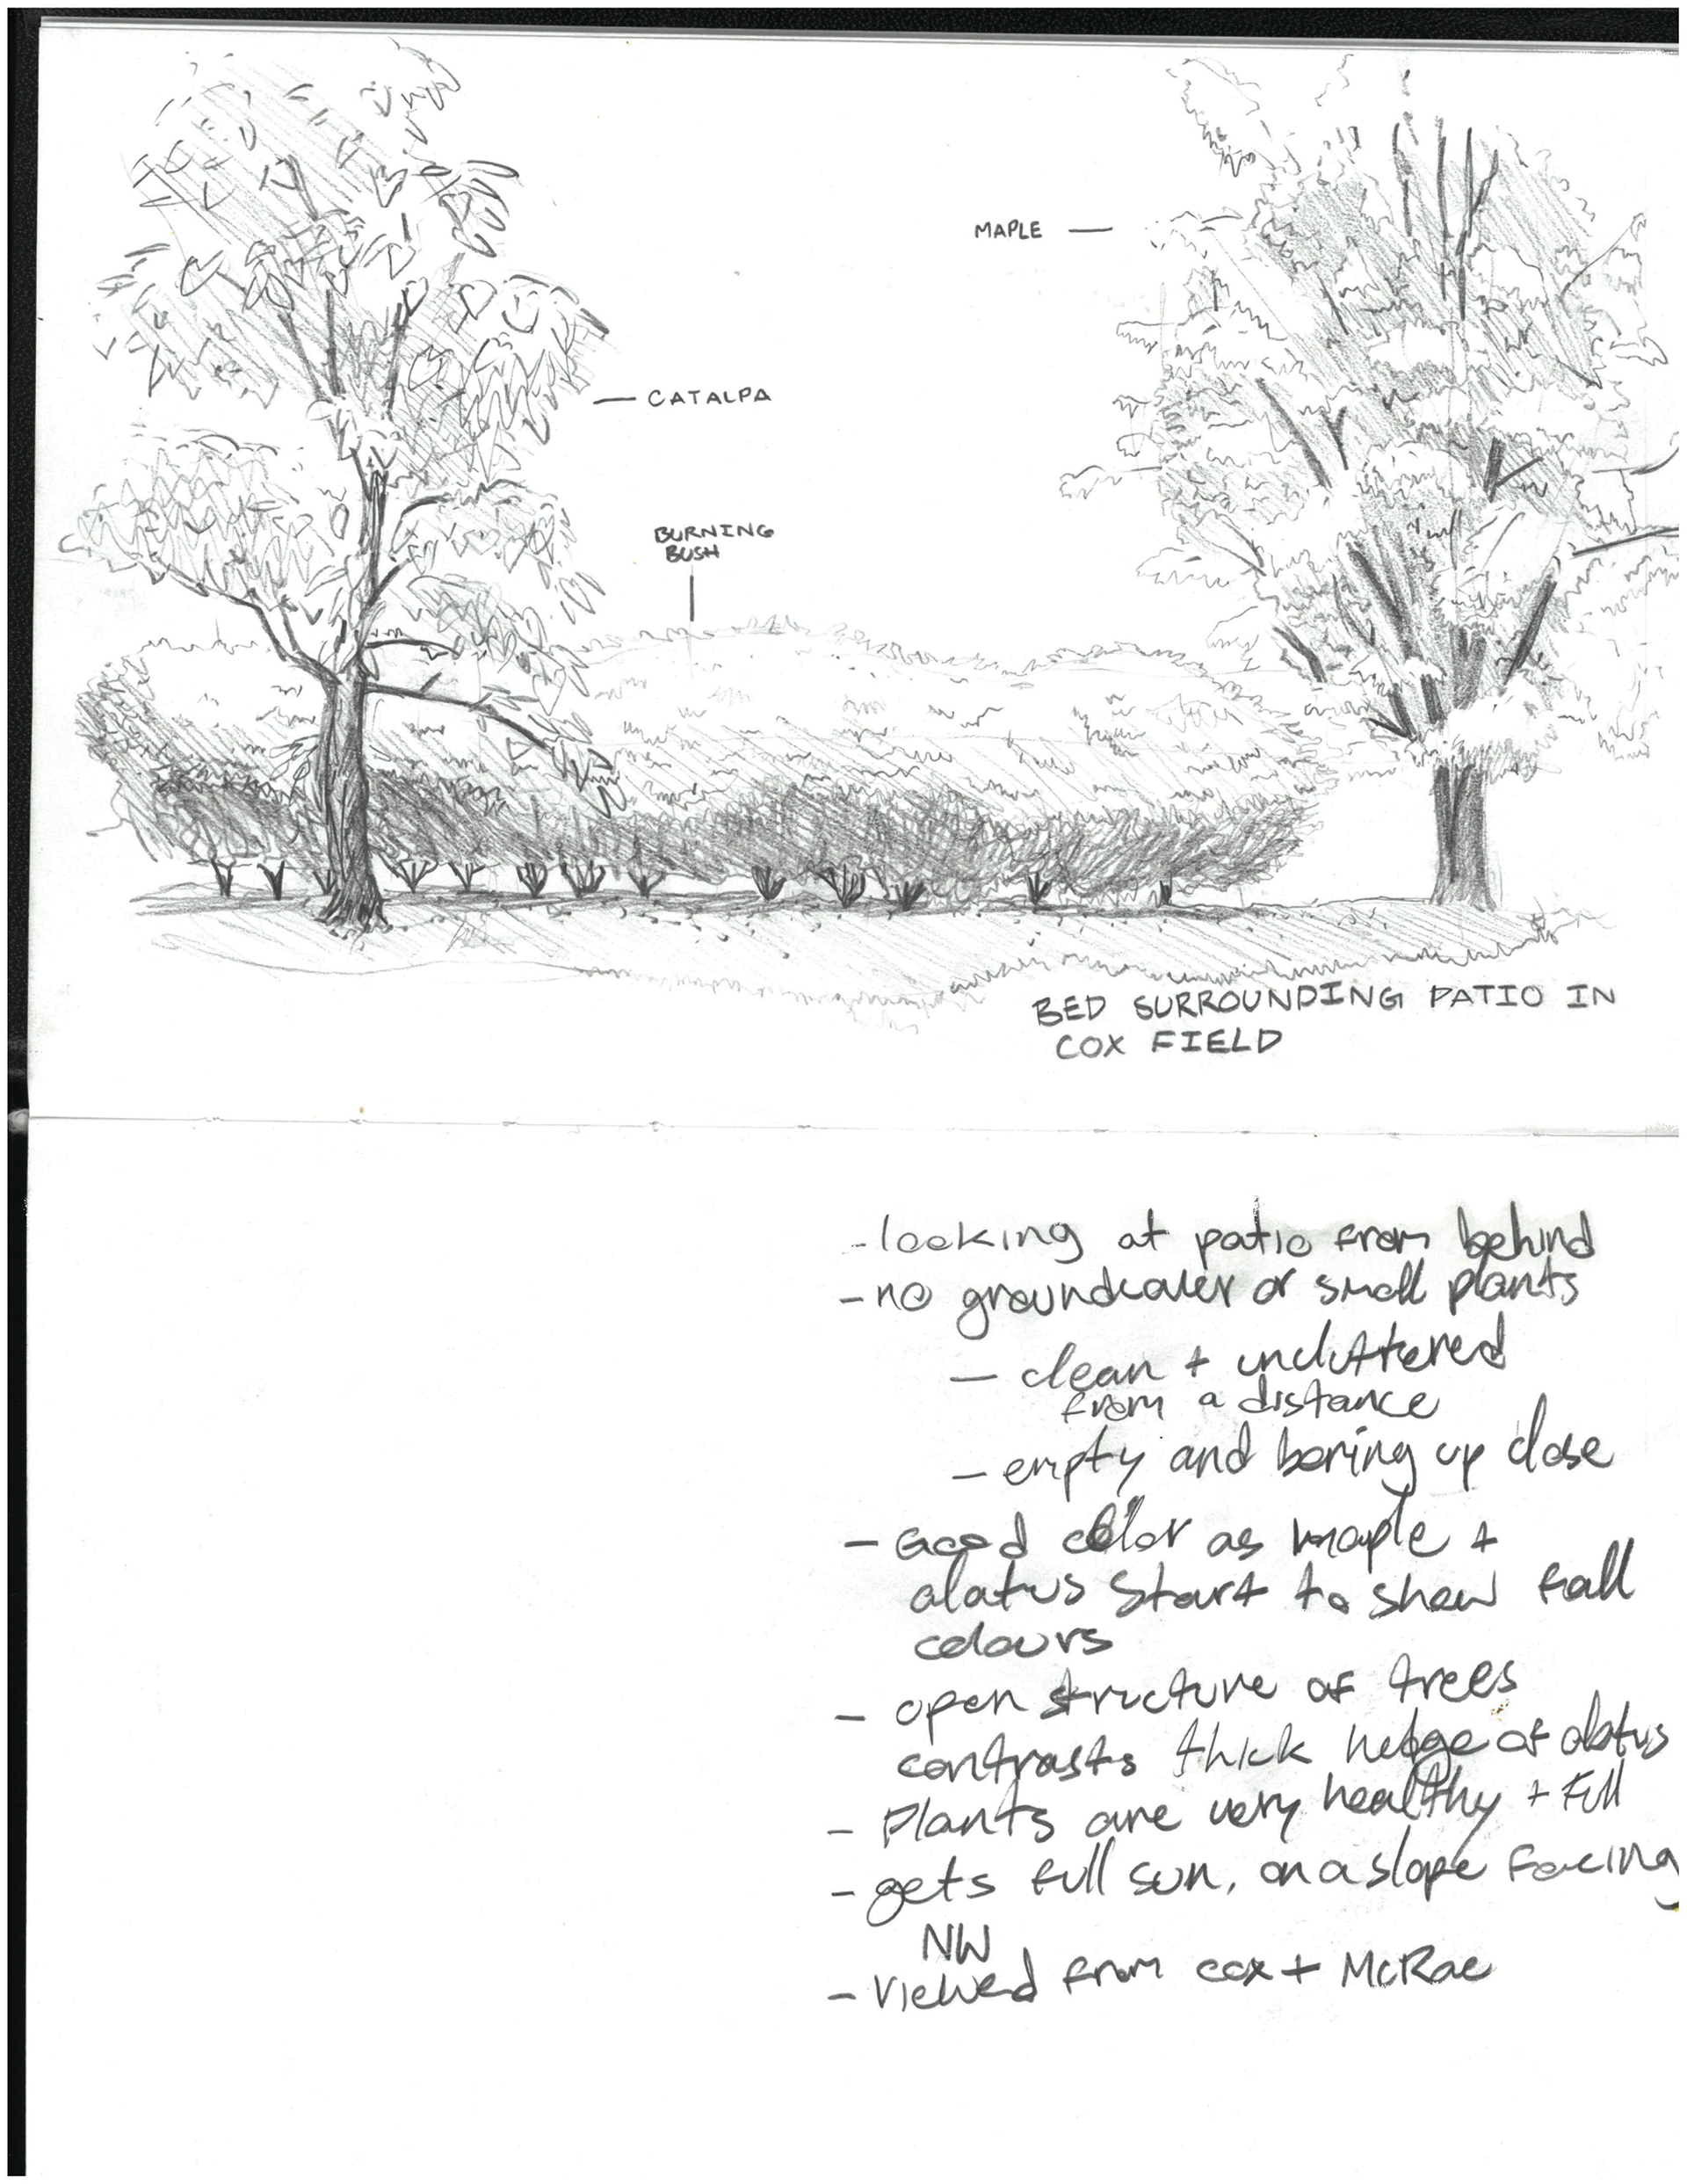 MAPLE —
— CATALPA
BURNING
BUSH
BED SURROUNDING PATIO IN
COX FIELD
- looking at patio from behind
- no groundcover or small plants
- clean + uncluttered
from a distance
- empty and boring up close
- Good color as maple +
alatus start to show fall
colours
- open structure of trees
contrasts thick hedge of alatus
- Plants are very healthy + full
- gets full sun, on a slope facing
NW
- Viewed from cox + McRae